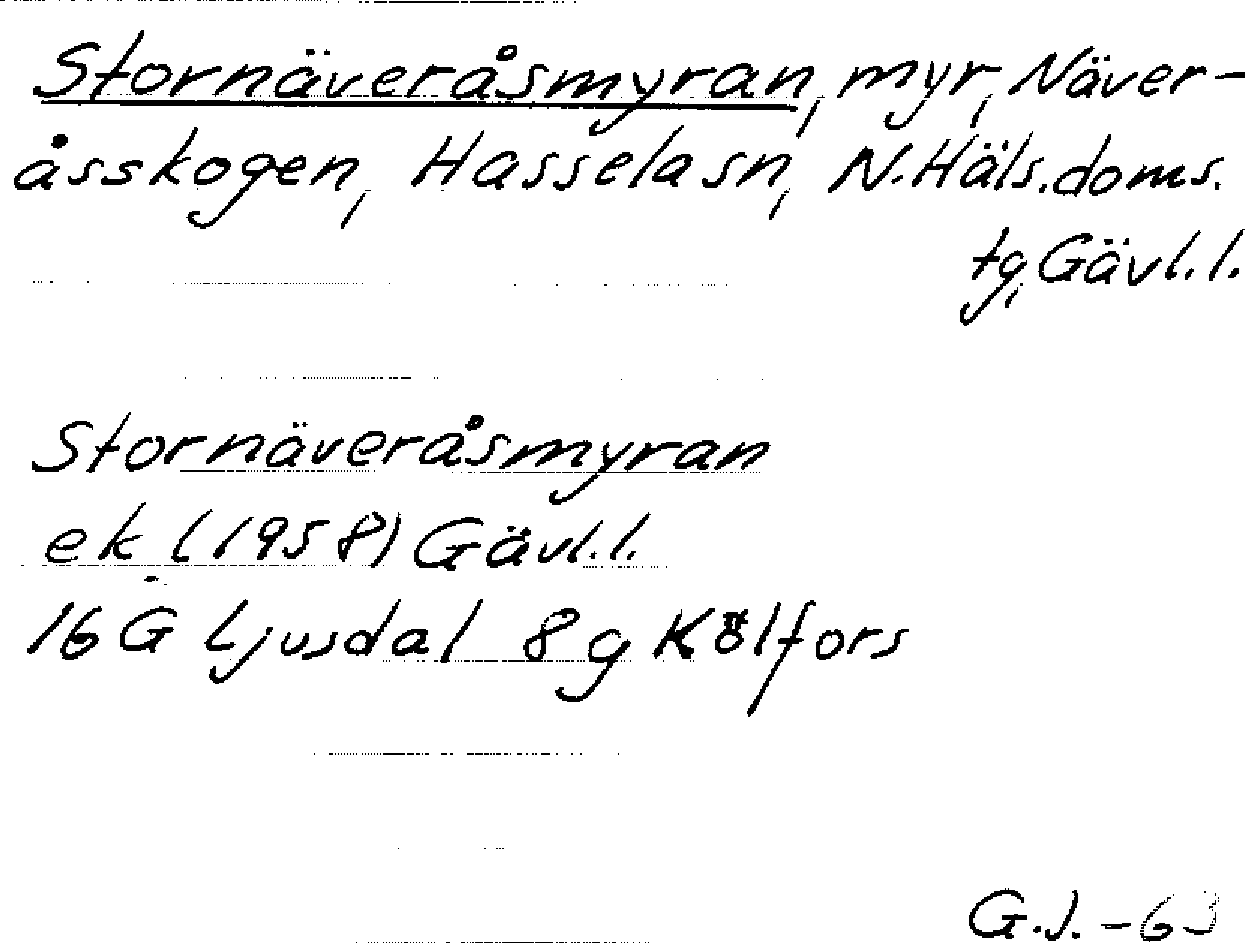 Stornäveråsmyran, myr, Näver-
åsskogen, Hasselasn, N.Häls.doms.
tg, Gävl.l.
Stornäveråsmyran
ek (1958) Gävl.l.
16 G Ljusdal 8 g Kölfors
G.J. -63